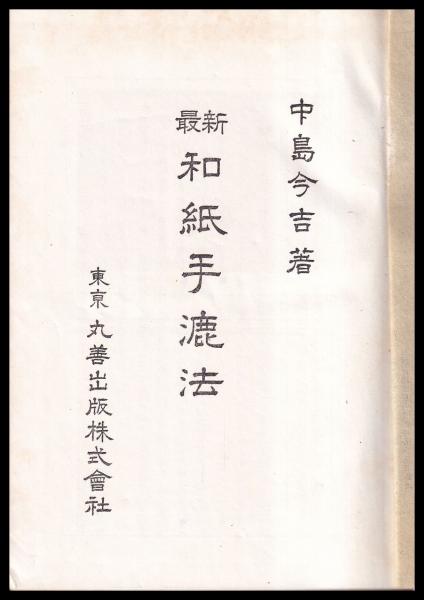 中島今吉著
最新
和紙手漉法
東京 丸善出版株式會社